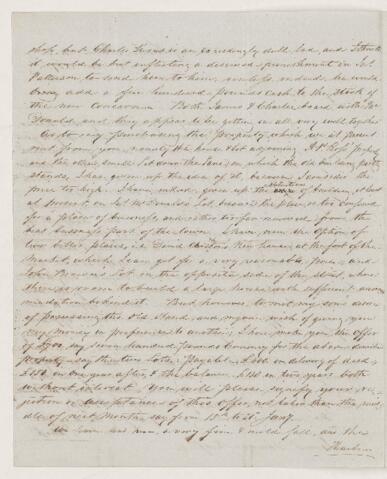 shop, but Charles Lewis is an exceedingly dull lad, and I think
it would be but inflicting a deserved punishment on Jos
Patterson to send him to him, unless, indeed, he could
bring add a few hundred pounds cash to the stock of
the new concern. Both James & Charles board with Mr
Donald, and they appear to be getting on all very well together.
As to my purchasing the property which we at present
rent from you, namely the house & lot adjoining A R Ross' property
and the other small lot down the lane, on which the old building
stands, I have given up the idea of it, because I consider the
price too high. I have, indeed, given up the intention of building, at least
at present, on Mr Lot, because the place is too confined
for a place of business and rather too far removed from the
best business part of the town. I have now the option of
two better places, i.e. David New house at the foot of the
Market, which I can get for a very reasonable price, and
John Lot on the opposite side of the street, where
there is room to build a large house with sufficient accom-
modation behind it. But, however, to meet my son's desire
of possessing the old stand, and my own wish of giving you
my money in preference to another, I now make you the offer
of £700 say seven hundred pounds Currency for the above
property, say the two lots. Payable £ on delivery of deed,
£ in one year after, & the balance, £ in two years both
without interest. You will please signify your re-
jection or acceptance of this offer, not later than the mid-
dle of next Month, say from 15th to 20 Jany.
We have had now, a very fine & mild fall, and the